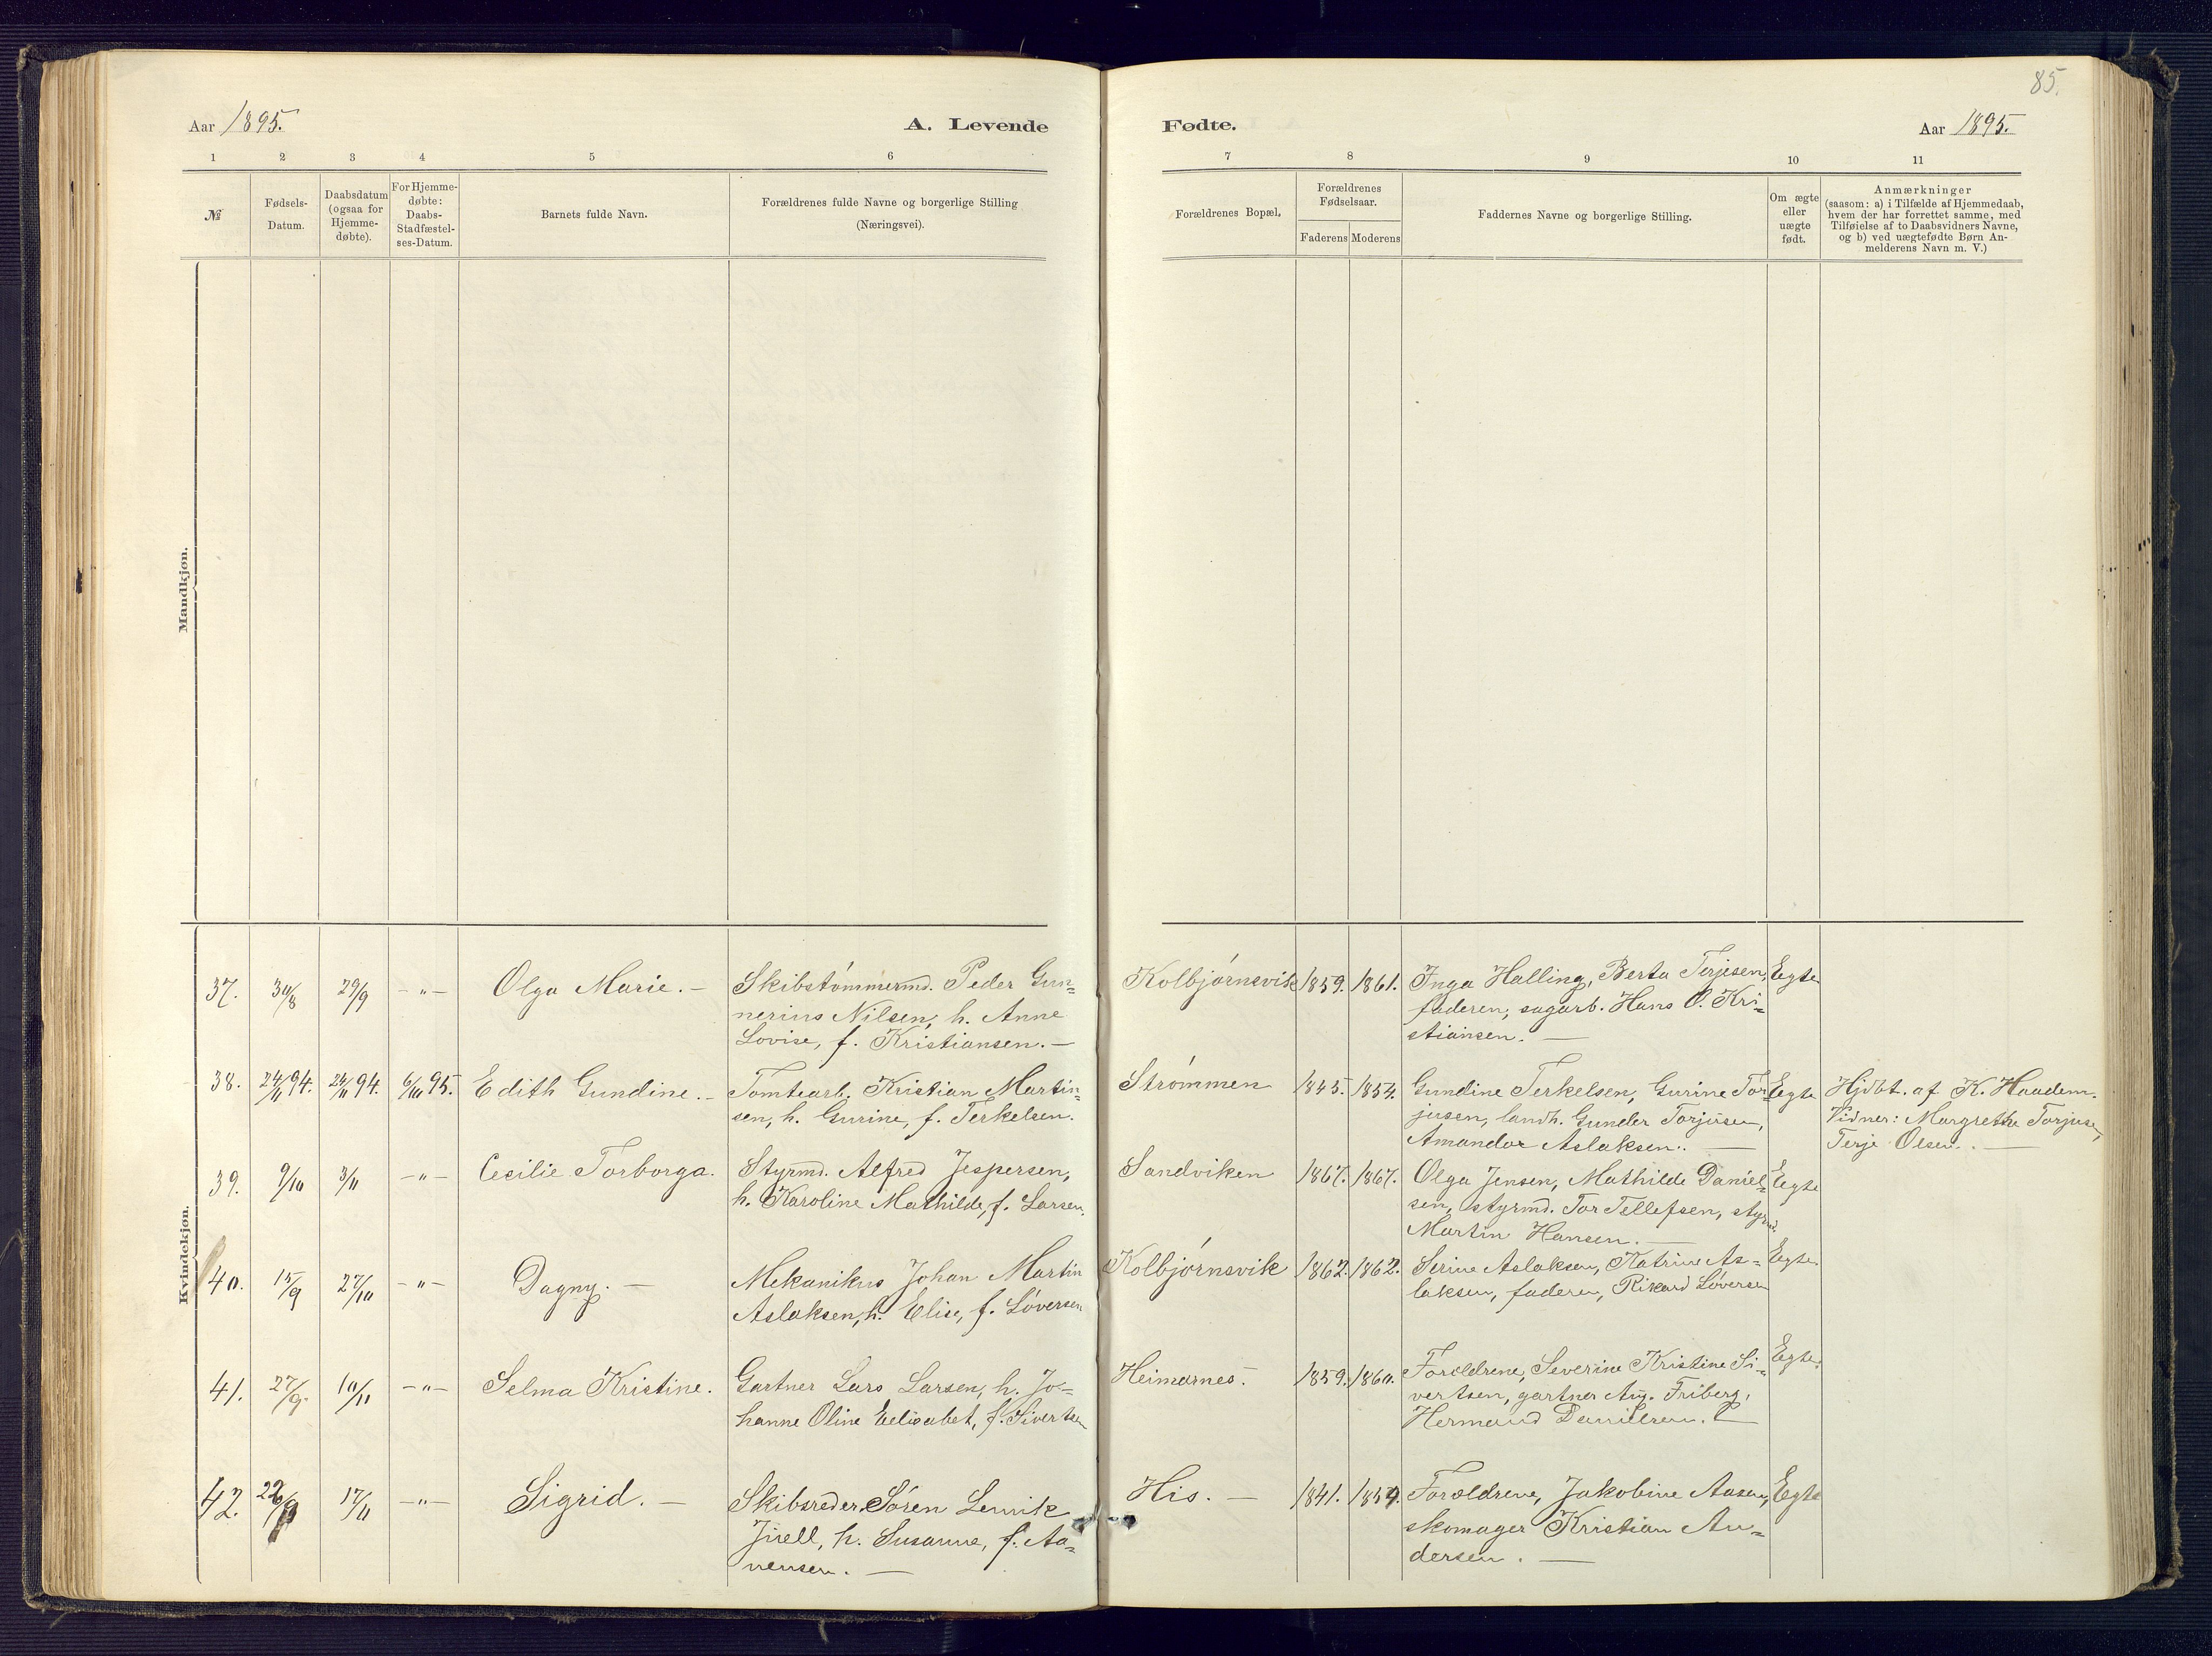 85.
Aar 1895.
A. Levende
Fødte.
Aar 1895.
1 2 3 4 5 6 7 8 9 10 11
№
Fødsels-
Datum.
Daabsdatum
(ogsaa for
Hjemme-
døbte).
For Hjemme-
døbte:
Daabs-
Stadfæstel-
ses-Datum.
Barnets fulde Navn.
Forældrenes fulde Navne og borgerlige Stilling
(Næringsvei).
Forældrenes Bopæl.
Forældrenes
Fødselsaar.
Faderens Moderens
Faddernes Navne og borgerlige Stilling.
Om ægte
eller
uægte
født.
Anmærkninger
(saasom: a) i Tilfælde af Hjemmedaab,
hvem der har forrettet samme, med
Tilføielse af to Daabsvidners Navne,
og b) ved uægtefødte Børn An-
melderens Navn m. V.)
Mandkjøn.
Kvindekjøn.
37. 30/8 29/9 -„- Olga Marie. -
Skibstømmermd. Peder Gun=
nerius Nilsen, h. Anne
Lovise, f. Kristiansen. -
Kolbjørnsvik 1859. 1861.
Inga Halling, Berta Terjesen,
faderen, sagarb. Hans O. Kri=
stiansen. -
Egte
38. 24/11 94. 24/11 94. 6/10 95. Edith Gundine. -
Tomtearb. Kristian Martin=
sen, h. Gurine, f. Terkelsen.
Strømmen 1845. 1854.
Gundine Terkelsen, Gurine Tor=
jusen, landh. Gunder Torjusen,
Amandar Aslaksen. -
Egte
Hjdbt. af K. Haadem.
Vidner: Margrethe Torjusen,
Terje Olsen. -
39. 9/10 3/11 -„- Cecilie Torborga.
Styrmd. Alfred Jespersen,
h. Karoline Mathilde, f. Larsen.
Sandviken 1867. 1867.
Olga Jensen, Mathilde Daniel=
sen, styrmd. Tor Tellefsen, styrmd.
Martin Hansen. -
Egte
40. 15/9 27/10 -„- Dagny. -
Mekanikus Johan Martin
Aslaksen, h. Elise, f. Løversen
Kolbjørnsvik 1862. 1862.
Serine Aslaksen, Katrine As=
laksen, faderen, Rikard Løversen
Egte.
41. 27/9. 10/11 -„- Selma Kristine.
Gartner Lars Larsen, h. Jo=
hanne Oline Eelisabet, f. Sivertsen
Heimarnes. 1859. 1860.
Forældrene, Severine Kristine Si=
vertsen, gartner Aug. Friberg,
Hermand Danielsen.
Egte.
42. 22/9 17/11 -„- Sigrid. -
Skibsreder Søren Lemik
Jirell, h. Susanne, f. Aa=
nensen. -
His. - 1841. 1854.
Forældrene, Jakobine Aasen,
skomager Kristian An=
dersen. -
Egte